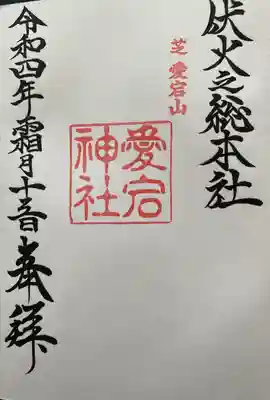 伏火之総本社
芝愛宕山
愛宕
神社
令和四年霜月十五日奉拝